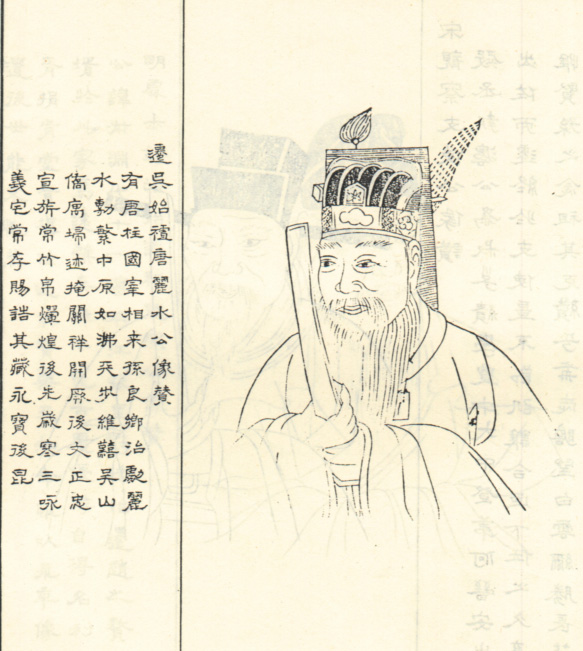 遷吳始祖唐麗水公像贊
有唐柱國宰相來孫良鄉治勵麗
水勣繁中原如沸天步維囏吳山
僑寓埽迹掩關祥開厥後文正忠
宣旂常竹帛爛煌後先歲寒三咏
義宅常存賜誥其藏永寶後昆